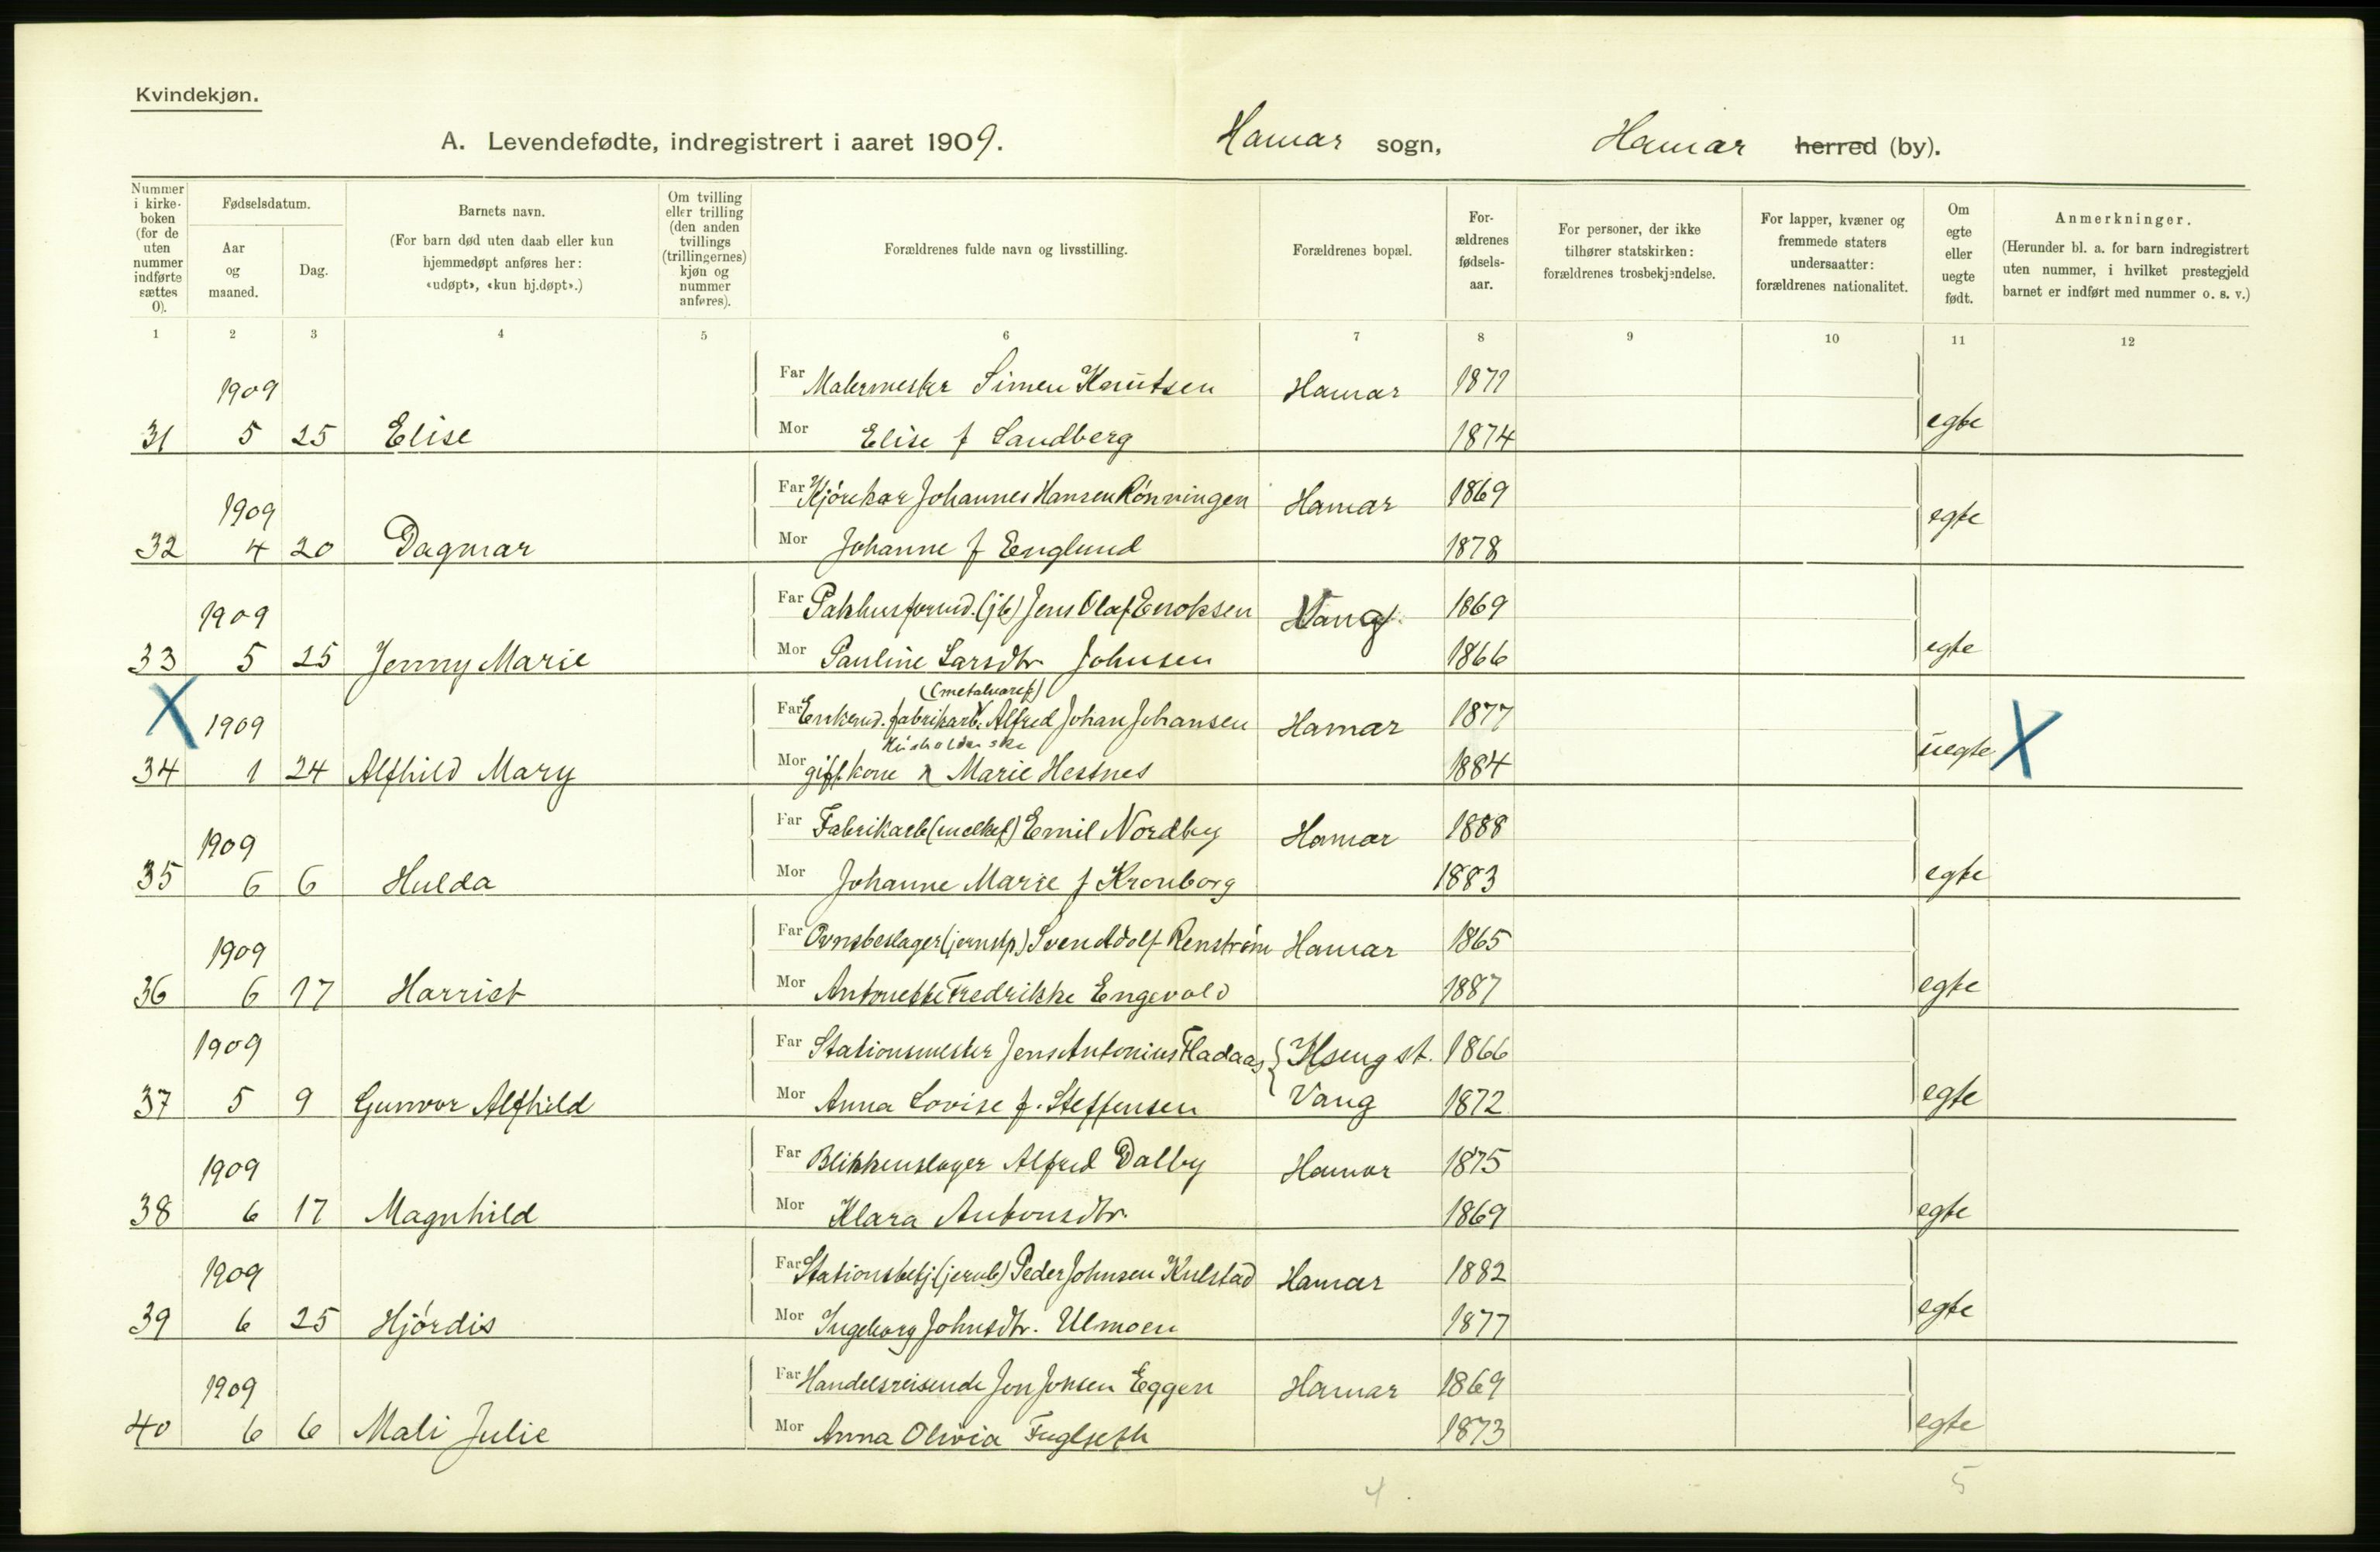 Kvindekjøn.
A. Levendefødte, indregistrert i aaret 1909. Hamar sogn, Hamar herred (by).
Nummer i kirke-boken (for de uten nummer indførte sættes 0).
Fødselsdatum.
Aar og maaned.
Dag.
Barnets navn.
(For barn død uten daab eller kun hjemmedøpt anføres her: «udøpt», «kun hj.døpt».)
Om tvilling eller trilling (den anden tvillings (trillingernes) kjøn og nummer anføres).
Forældrenes fulde navn og livsstilling.
Forældrenes bopæl.
For-ældrenes fødsels-aar.
For personer, der ikke tilhører statskirken: forældrenes trosbekjendelse.
For lapper, kvæner og fremmede staters undersaatter: forældrenes nationalitet.
Om egte eller uegte født.
Anmerkninger.
(Herunder bl. a. for barn indregistrert uten nummer, i hvilket prestegjeld barnet er indført med nummer o. s. v.)
1 2 3 4 5 6 7 8 9 10 11 12
1909 Far Malermester Simen Knutsen Hamar 1871
31 5 25 Elise Mor Elise f Sandberg 1874 egte
1909 Far Kjørekar Johannes Hansen Rønningen Hamar 1869
32 4 20 Dagmar Mor Johanne f Englund 1878 egte
1909 Far Pakhusformd. (jb) Jens Olaf Enoksen Vang 1869
33 5 25 Jenny Marie Mor Pauline Larsdtr. Johnsen 1866 egte
(metalvaref)
X 1909 Far Enkemd. fabrikarb. Alfred Johan Johansen Hamar 1877
Husholderske
34 1 24 Alfhild Mary Mor gift kone Marie Hestnes 1884 uegte X
1909 Far Fabrikarb (melkef) Emil Nordby Hamar 1888
35 6 6 Hulda Mor Johanne Marie f Kronborg 1883 egte
1909 Far Ovnsbeslager (jernstp) Svend Adolf Renstrøm Hamar 1865
36 6 17 Harriet Mor Antonette Fredrikke Engevold 1887 egte
1909 Far Stationsmester Jens Antonius Fladaas Ilseng st. 1866
37 5 9 Gunvor Alfhild Mor Anna Lovise f. Steffensen Vang 1872 egte
1909 Far Blikkenslager Alfred Dalby Hamar 1875
38 6 17 Magnhild Mor Klara Antonsdtr. 1869 egte
1909 Far Stationsbetj (jernb) Peder Johnsen Kulstad Hamar 1882
39 6 25 Hjórdis Mor Ingeborg Johnsdtr. Ulmoen 1877 egte
1909 Far Handelsreisende Jon Jonsen Eggen Hamar 1869
40 6 6 Mali Julie Mor Anna Olivia Fuglseth 1873 egte
4. 5